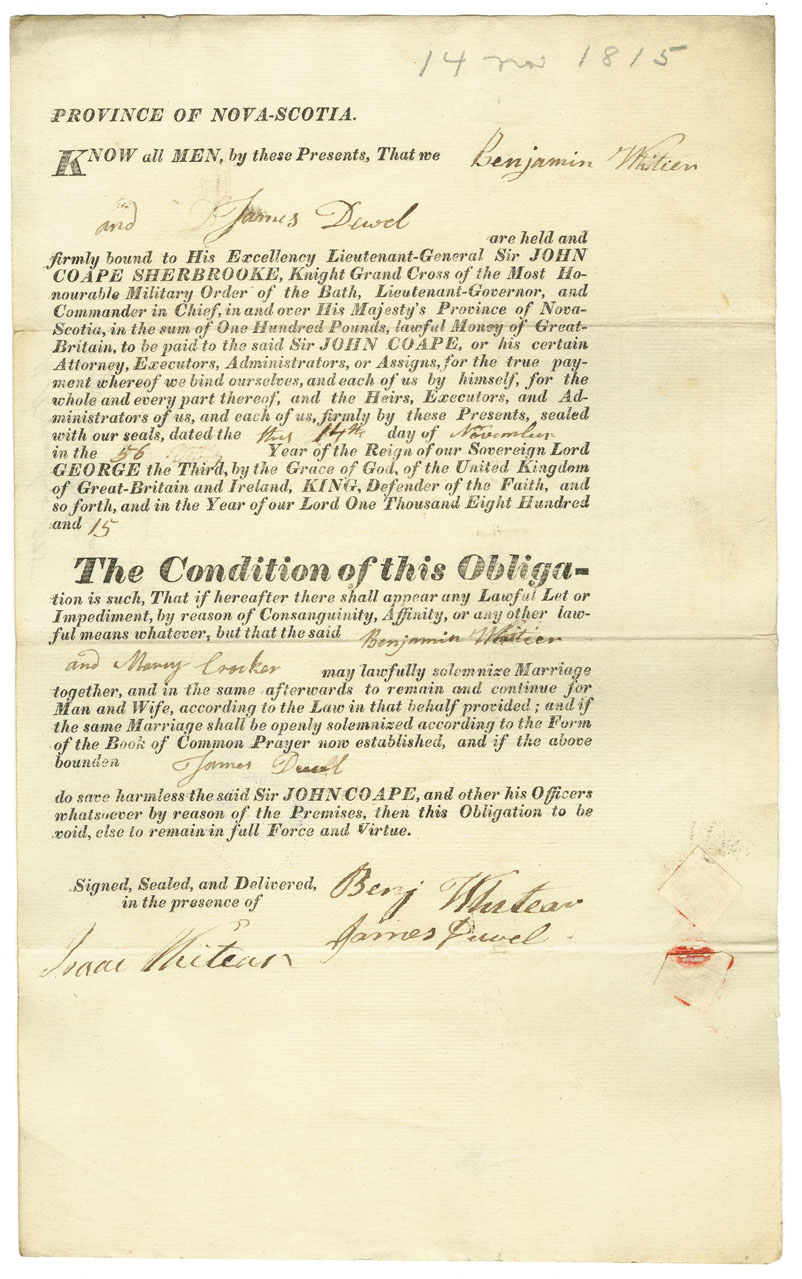 14 Nov 1815
PROVINCE OF NOVA-SCOTIA.
KNOW all MEN, by these Presents, That we Benjamin Whitien
and James Dewel
are held and
firmly bound to His Excellency Lieutenant-General Sir JOHN
COAPE SHERBROOKE, Knight Grand Cross of the Most Ho-
nourable Military Order of the Bath, Lieutenant-Governor, and
Commander in Chief, in and over His Majesty's Province of Nova-
Scotia, in the sum of One Hundred Pounds, lawful Money of Great-
Britain, to be paid to the said Sir JOHN COAPE, or his certain
Attorney, Executors, Administrators, or Assigns, for the true pay-
ment whereof we bind ourselves, and each of us by himself, for the
whole and every part thereof, and the Heirs, Executors, and Ad-
ministrators of us, and each of us, firmly by these Presents, sealed
with our seals, dated the this 14th day of November
in the 56 Year of the Reign of our Sovereign Lord
GEORGE the Third, by the Grace of God, of the United Kingdom
of Great-Britain and Ireland, KING, Defender of the Faith, and
so forth, and in the Year of our Lord One Thousand Eight Hundred
and 15
The Condition of this Obliga-
tion is such, That if hereafter there shall appear any Lawful Let or
Impediment, by reason of Consanguinity, Affinity, or any other law-
ful means whatever, but that the said Benjamin Whitien
and Marcy Crocker may lawfully solemnize Marriage
together, and in the same afterwards to remain and continue for
Man and Wife, according to the Law in that behalf provided; and if
the same Marriage shall be openly solemnized according to the Form
of the Book of Common Prayer now established, and if the above
bounden James Duel
do save harmless the said Sir JOHN COAPE, and other his Officers
whatsoever by reason of the Premises, then this Obligation to be
void, else to remain in full Force and Virtue.
Signed, Sealed, and Delivered,
in the presence of
Benj Whitear
James Duvel
Isaac Whitear